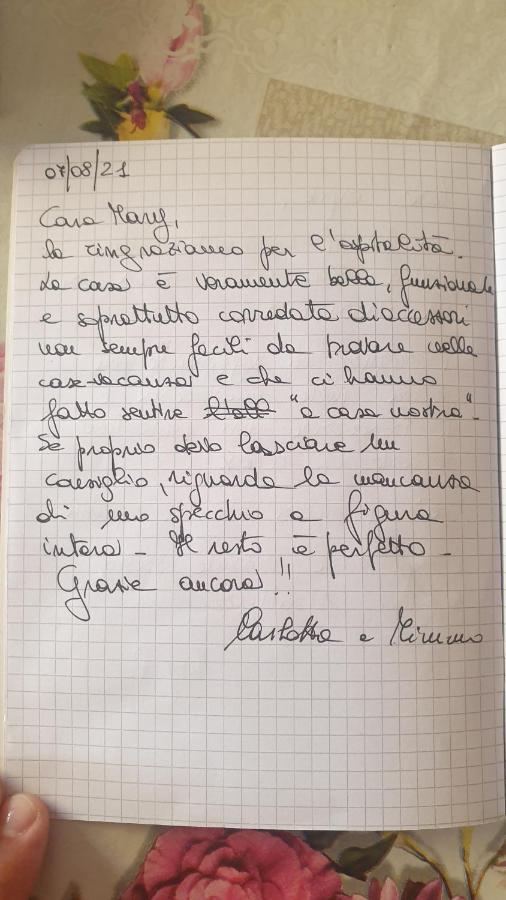 07/08/21
Cara Mary,
la ringraziamo per l'ospitalità.
La casa è veramente bella, funzionale
e soprattutto corredata di accessori
non sempre facili da trovare nelle
case-vacanza e che ci hanno
fatto sentire "a casa nostra" -
Se proprio devo lasciare un
consiglio, riguarda la mancanza
di uno specchio a figura
intera - Il resto è perfetto -
Grazie ancora!!
Carlotta e Mimmo